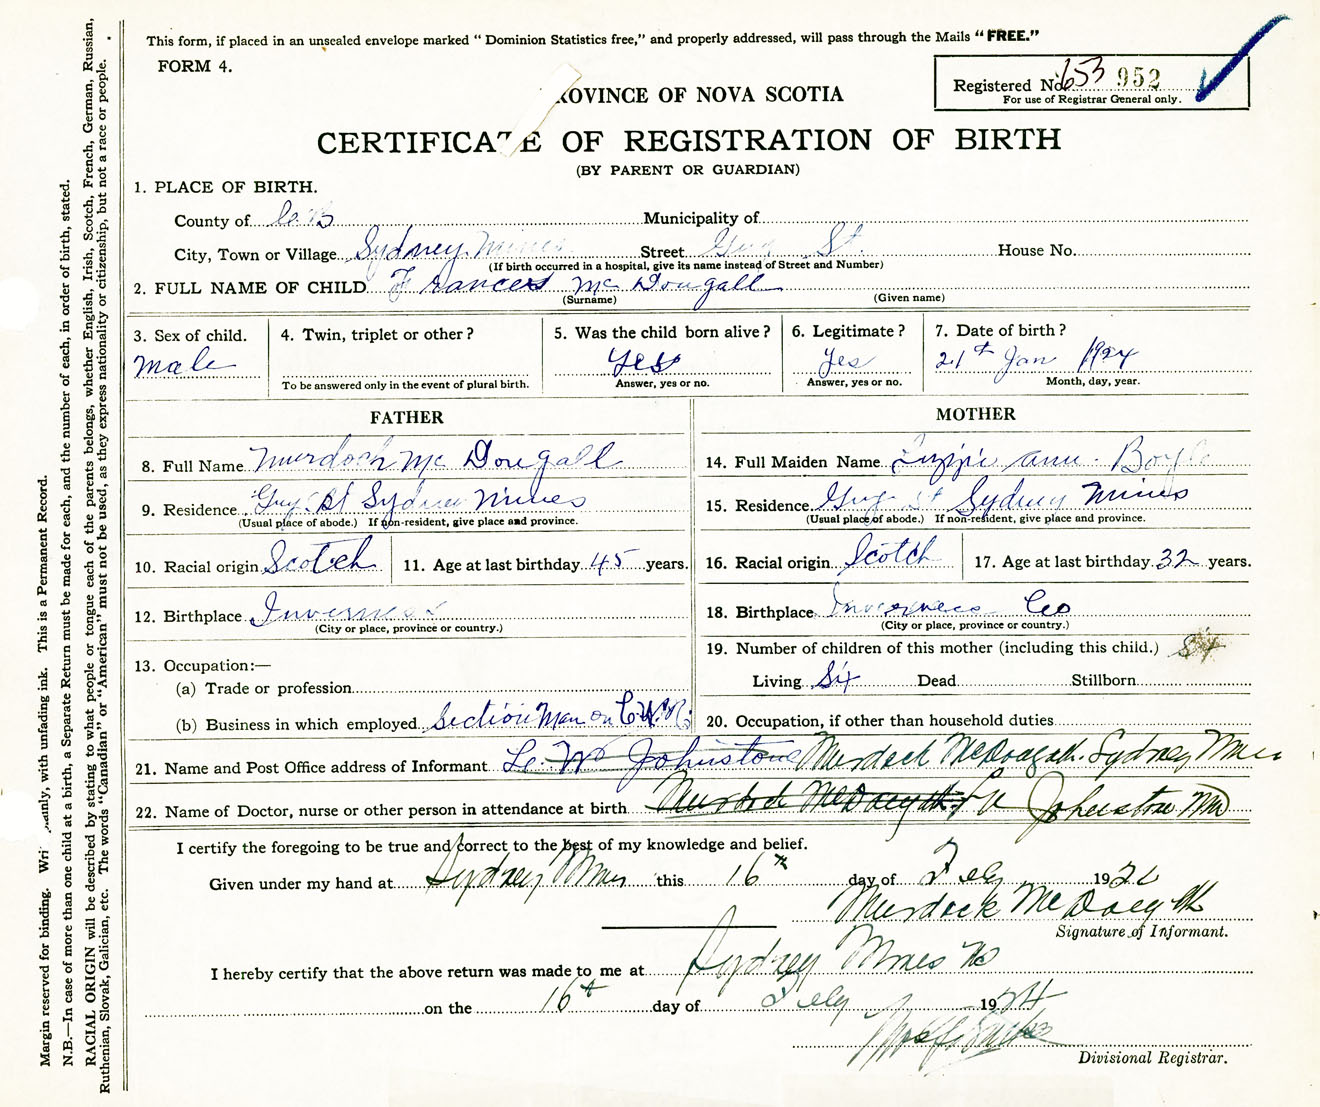 This form, if placed in an unsealed envelope marked “ Dominion Statistics free,” and properly addressed, will pass through the Mails “ FREE.”
FORM 4.
Registered No. 653 952
For use of Registrar General only.
ROVINCE OF NOVA SCOTIA
CERTIFICATE OF REGISTRATION OF BIRTH
(BY PARENT OR GUARDIAN)
1. PLACE OF BIRTH.
County of C.B Municipality of
City, Town or Village Sydney Mines Street Guy St. House No.
(If birth occurred in a hospital, give its name instead of Street and Number)
2. FULL NAME OF CHILD Frances Mc Dougall
(Surname) (Given name)
3. Sex of child. 4. Twin, triplet or other? 5. Was the child born alive? 6. Legitimate? 7. Date of birth?
male yes yes 21st Jan 1924
To be answered only in the event of plural birth. Answer, yes or no. Answer, yes or no. Month, day, year.
FATHER MOTHER
8. Full Name Murdoch Mc Dougall 14. Full Maiden Name Lizzie Ann. Boyle
9. Residence Guy. St Sydney Mines 15. Residence Guy St Sydney Mines
(Usual place of abode.) If non-resident, give place and province. (Usual place of abode.) If non-resident, give place and province.
10. Racial origin Scotch 11. Age at last birthday 45 years. 16. Racial origin Scotch 17. Age at last birthday 32 years.
12. Birthplace Inverness 18. Birthplace Inverness Co
(City or place, province or country.) (City or place, province or country.)
19. Number of children of this mother (including this child.) Six
13. Occupation:—
(a) Trade or profession Living Six Dead Stillborn
(b) Business in which employed Section Man on 20. Occupation, if other than household duties
21. Name and Post Office address of Informant Le. W. Johnstone Murdock McDougall. Sydney Mines
22. Name of Doctor, nurse or other person in attendance at birth Murdock Johnstone MD
I certify the foregoing to be true and correct to the best of my knowledge and belief.
Given under my hand at Sydney Mines this 16th day of Feby 192
Murdock
Signature of Informant.
I hereby certify that the above return was made to me at Sydney Mines NS
on the 16th day of Feby 1924
Divisional Registrar.
Margin reserved for binding. Wri ainly, with unfading ink. This is a Permanent Record.
N.B.—In case of more than one child at a birth, a Separate Return must be made for each, and the number of each, in order of birth, stated.
RACIAL ORIGIN will be described by stating to what people or tongue each of the parents belongs, whether English, Irish, Scotch, French, German, Russian,
Ruthenian, Slovak, Galician, etc. The words “Canadian” or “American” must not be used, as they express nationality or citizenship, but not a race or people.